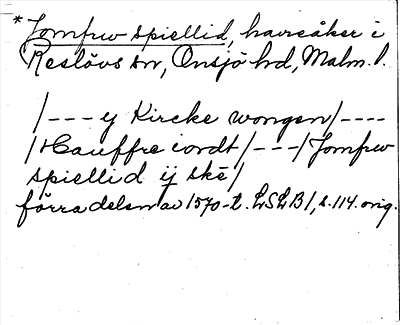 * Jomfrw spiellid, havreåker i
Reslövs sn, Onsjö hd, Malm. l.
/--- y Kircke wongen/----
/Hauffre iordt/---/Jomfrw
spiellid ÿ skē/
förra delen av 1570-t. LSLB 1, s. 114. orig.